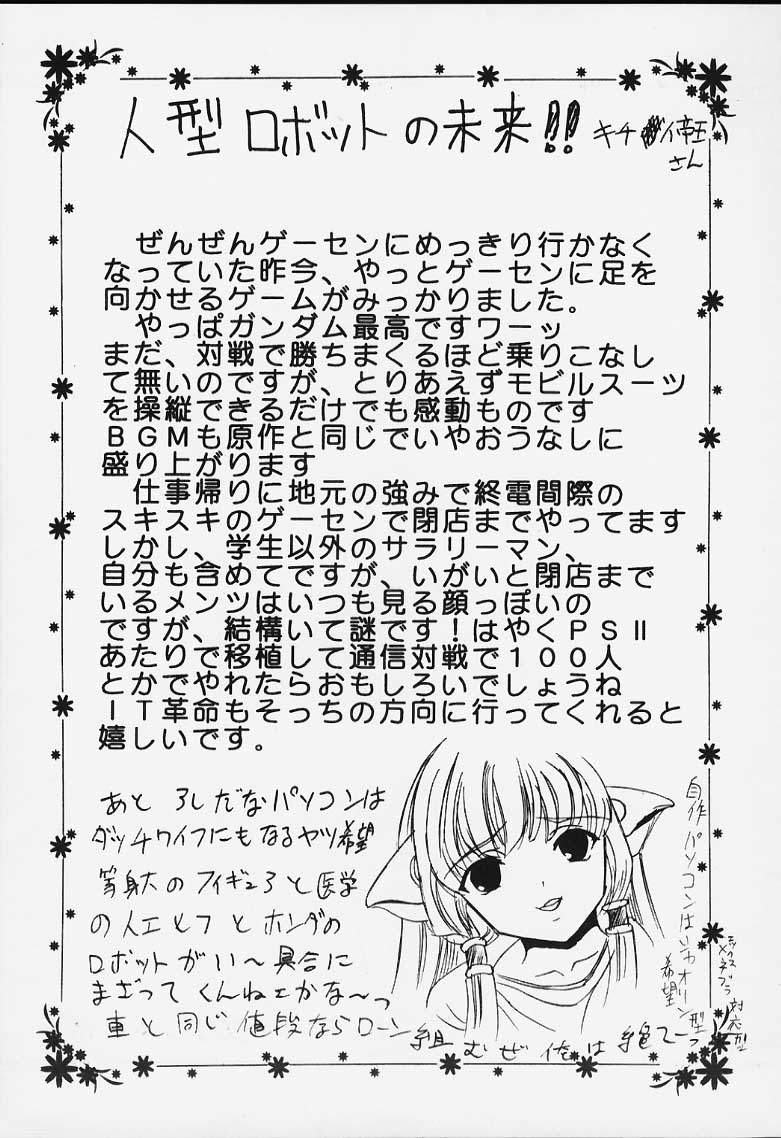 人型ロボットの未来!!
キチ イ帝王
さん
ぜんぜんゲーセンにめっきり行かなく
なっていた昨今、やっとゲーセンに足を
向かせるゲームがみっかりました。
やっぱガンダム最高ですワーッ
まだ、対戦で勝ちまくるほど乗りこなし
て無いのですが、とりあえずモビルスーツ
を操縦できるだけでも感動ものです
BGMも原作と同じでいやおうなしに
盛り上がります
仕事帰りに地元の強みで終電間際の
スキスキのゲーセンで閉店までやってます
しかし、学生以外のサラリーマン、
自分も含めてですが、いがいと閉店まで
いるメンツはいつも見る顔っぽいの
ですが、結構いて謎です!はやくPSII
あたりで移植して通信対戦で100人
とかでやれたらおもしろいでしょうね
IT革命もそっちの方向に行ってくれると
嬉しいです。
あと なパソコンは
ダッチワイフにもなるヤツ希望
等身大のフィギュアと医学
の人工 とホンダの
ロボットがい~具合に
まざってくんねェかな~っ
車と同じ値段ならローン組むぜ俺は 絶てーっ
自作パソコンは オリン型
希望
対応型